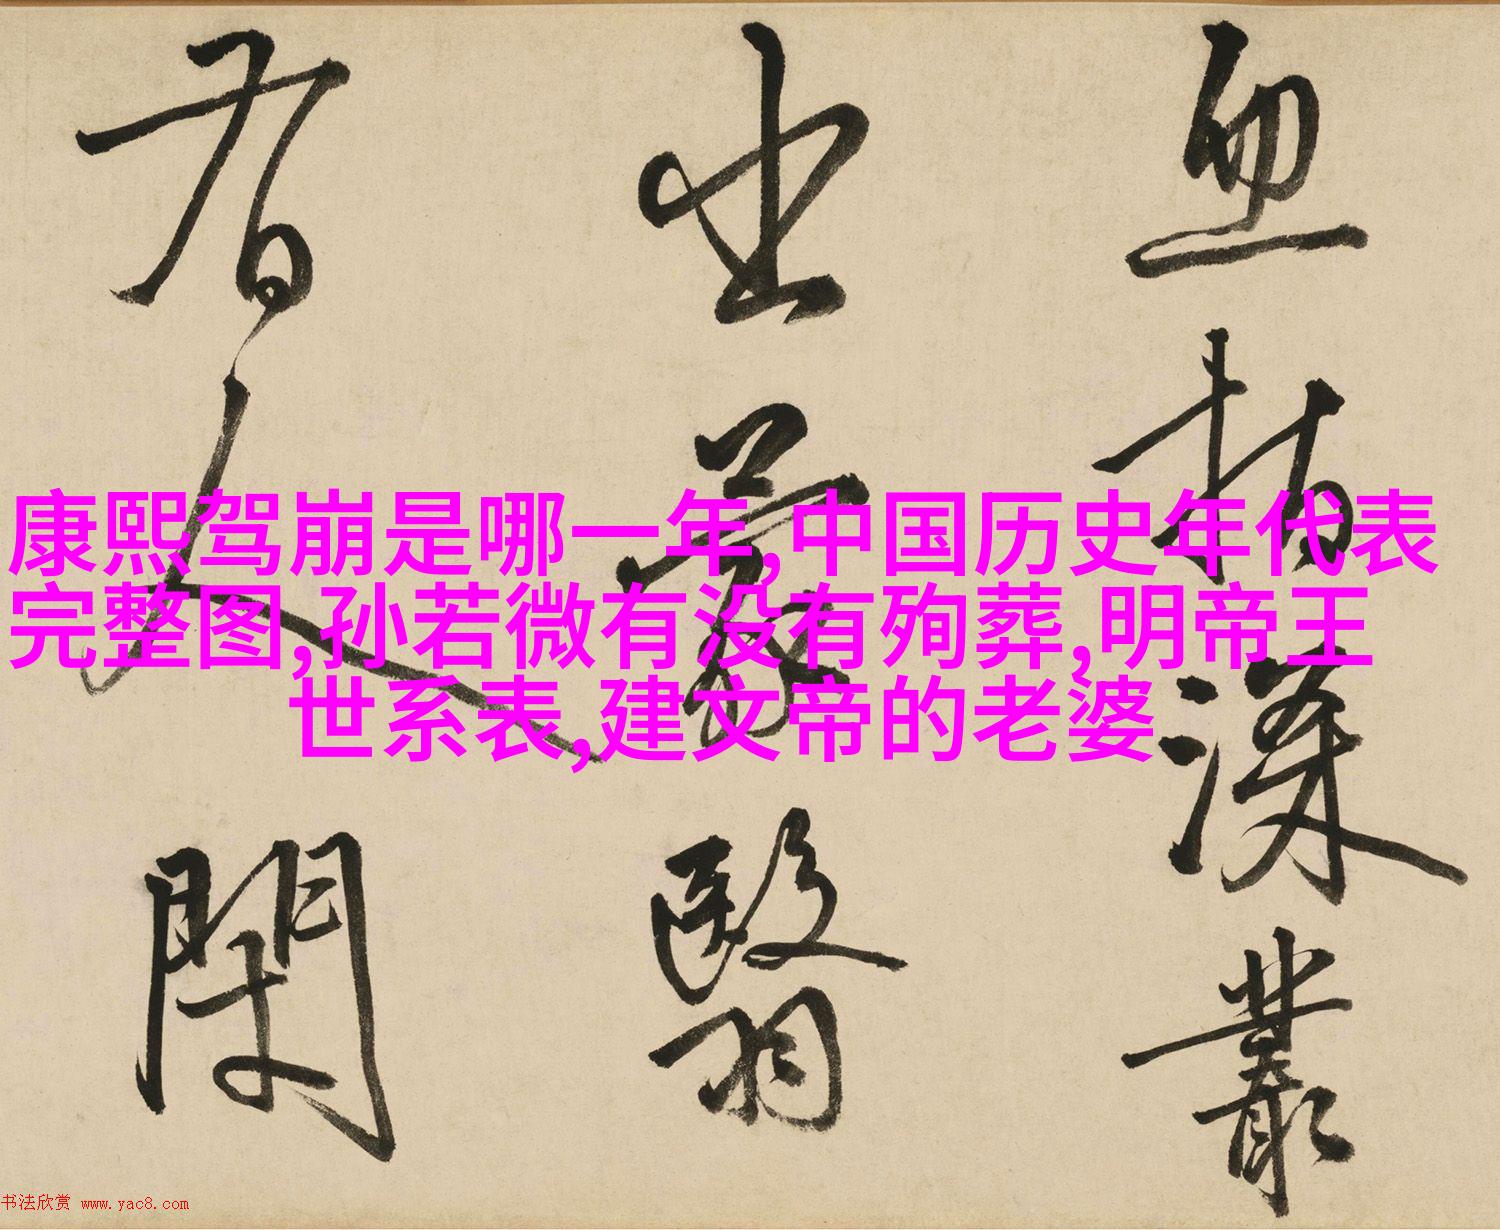 康熙驾崩是哪一年,中国历史年代表
完整图,孙若微有没有殉葬,明帝王
世系表,建文帝的老婆
深叢
出
翳
有人
閑
书法欣赏 www.yac8.com